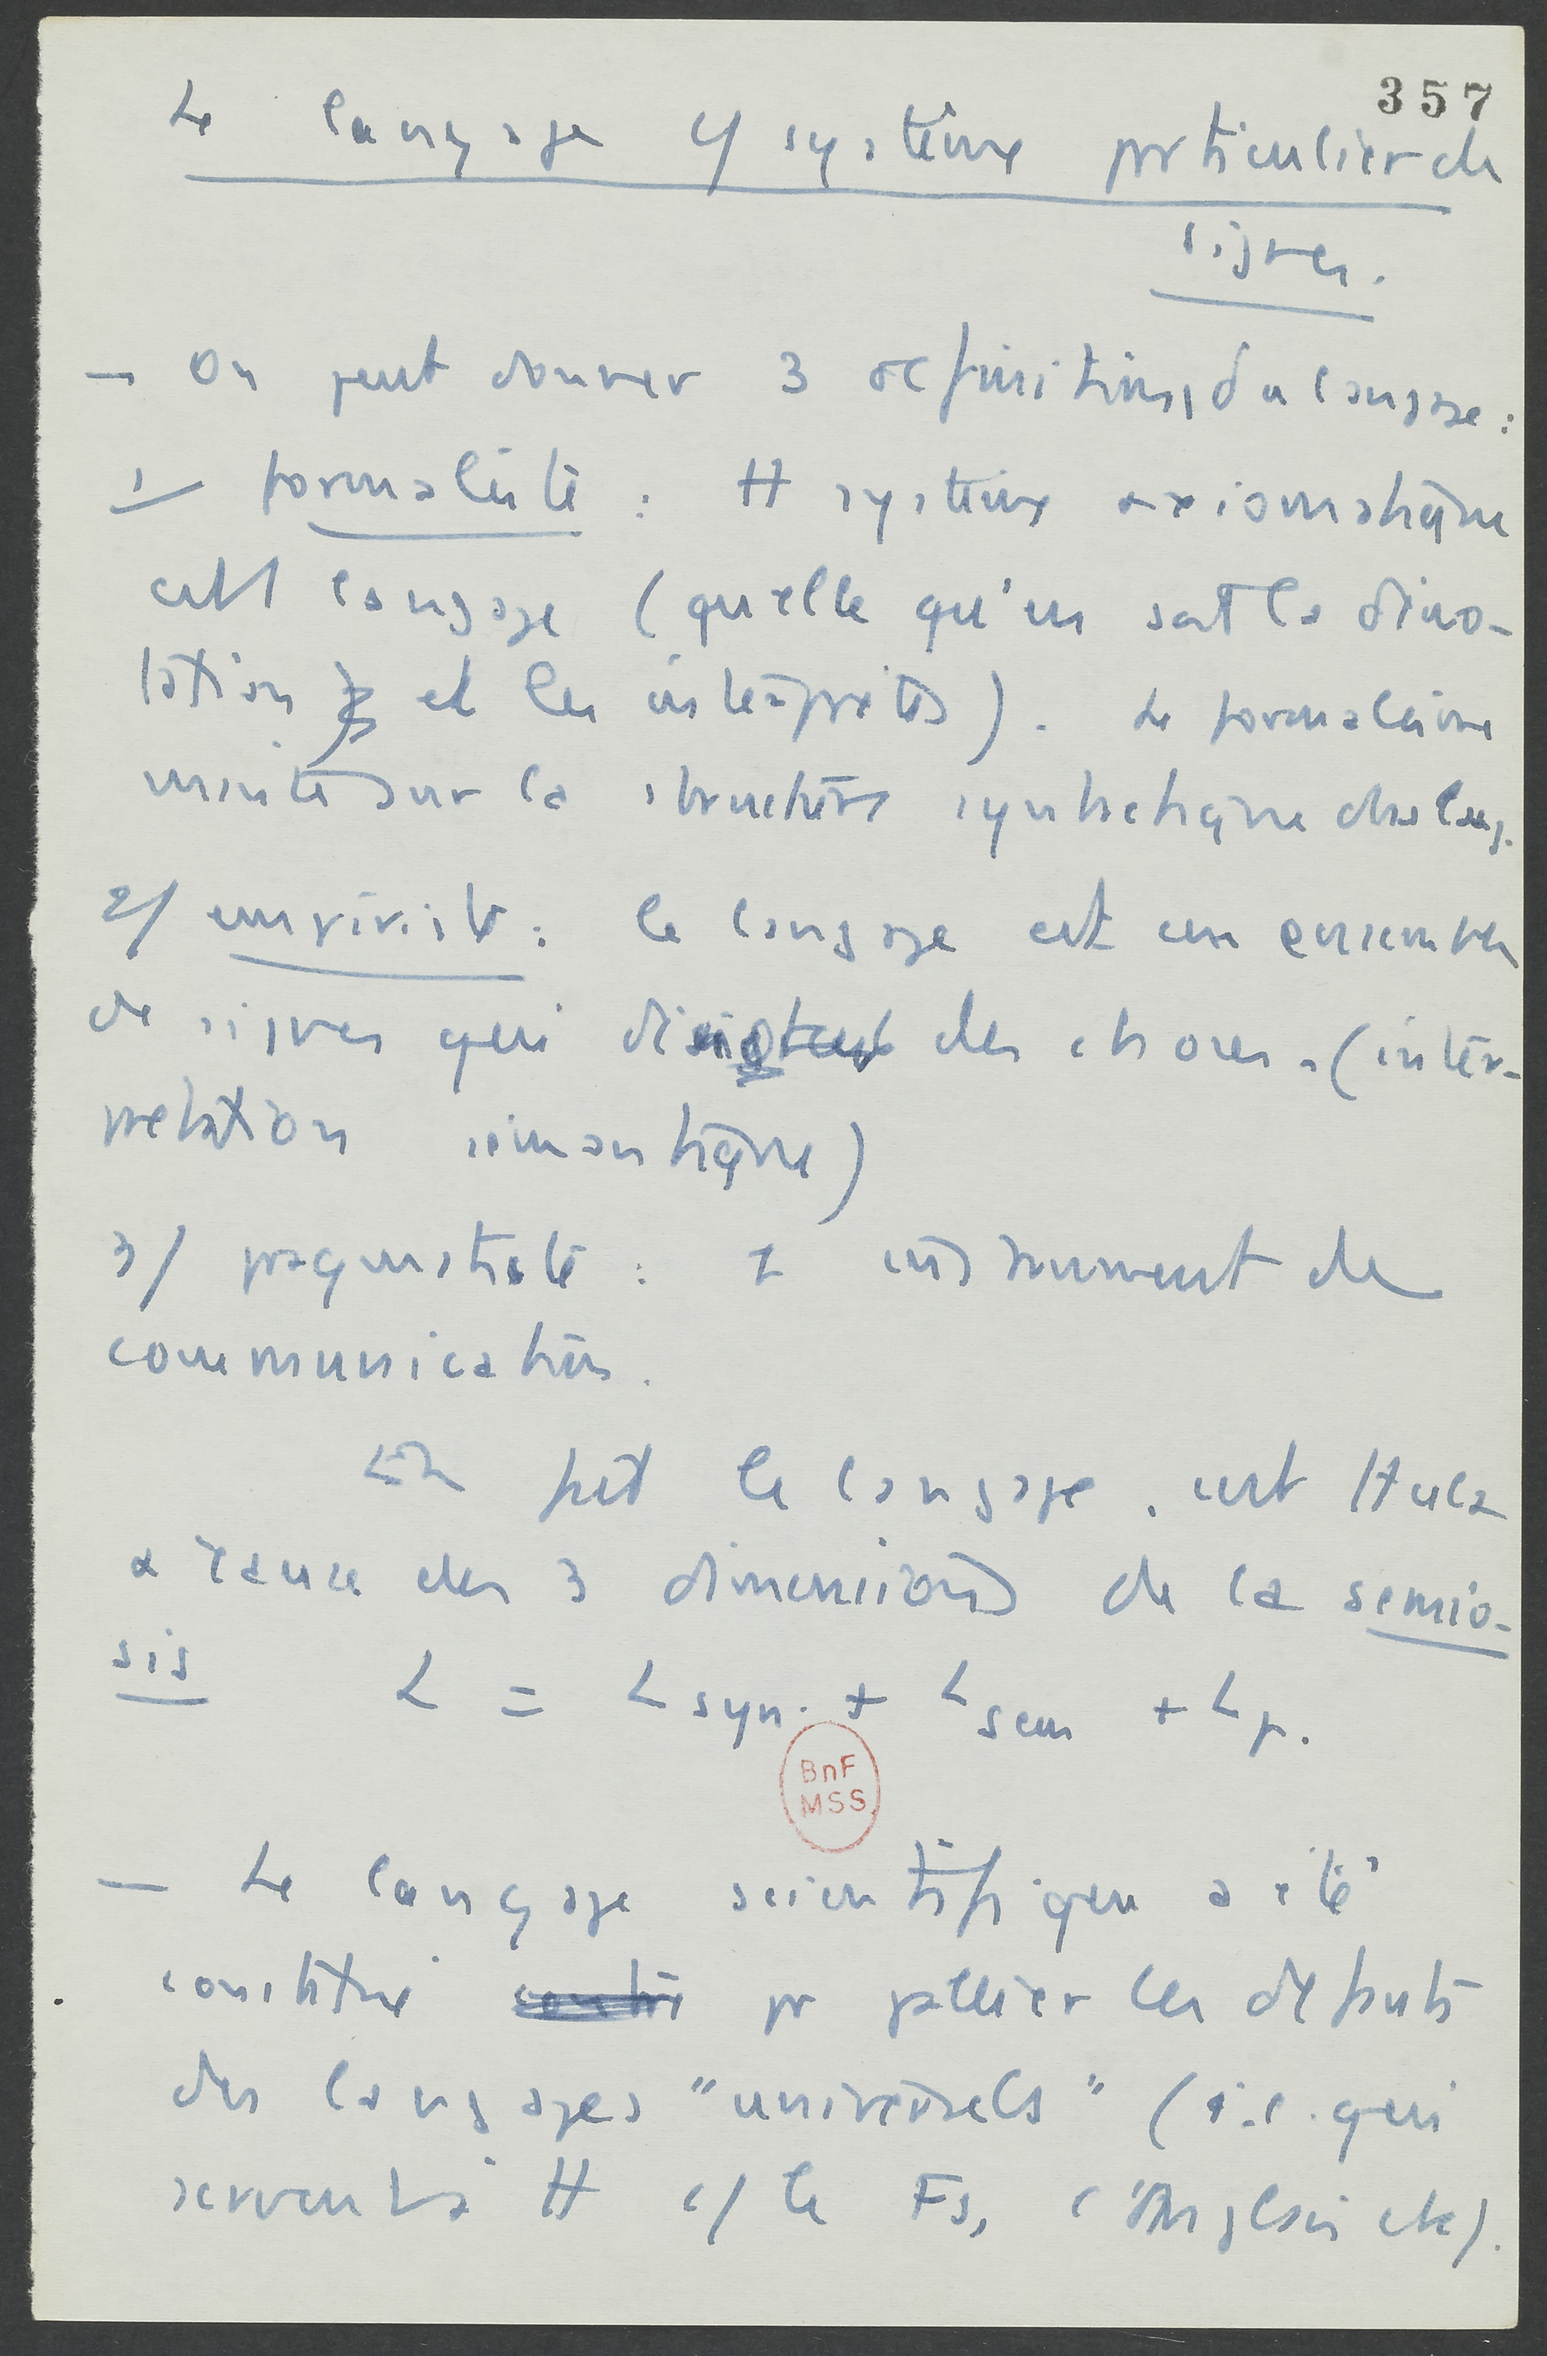 357
Le langage c/ système particulier de
signes.
— On peut donner 3 définitions du langage :
1/ formaliste : tt système axiomatique
est 1 langage (quelle qu'en soit la déno-
tation et les interprètes). Le formalisme
insiste sur la structure syntactique du lang.
2/ empiriste : le langage est un ensemble
de signes qui des choses. (inter-
prétation sémantique)
3/ pragmatiste : 1 instrument de
communication.
En fait le langage, c'est tt cela
à cause des 3 dimensions de la semio-
sis L = L syn. + L sem + L p.
BnF
MSS
— Le langage scientifique a été
constitué pr pallier les défauts
des langages "universels" (i.e. qui
servent à tt c/ le Fs, l'Anglais etc).